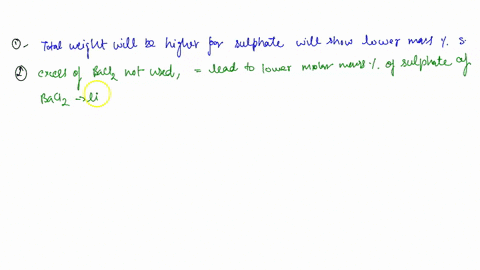 ①- Total weight will be higher for sulphate will show lower mass %. s.
② excess of BaCl2 not used, = lead to lower molar mass %. of sulphate of
BaCl2 → li